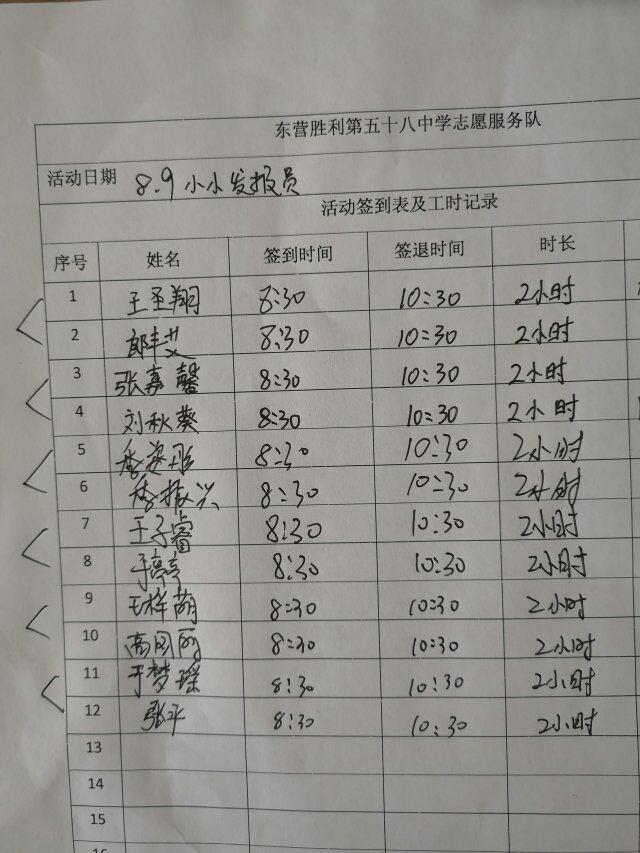 东营胜利第五十八中学志愿服务队
活动日期 8.9 小小发报员
活动签到表及工时记录
序号 姓名 签到时间 签退时间 时长
1 王圣翔 8:30 10:30 2小时
2 郎丰艾 8:30 10:30 2小时
3 张嘉馨 8:30 10:30 2小时
4 刘秋葵 8:30 10:30 2小时
5 8:30 10:30 2小时
6 8:30 10:30 2小时
7 王子睿 8:30 10:30 2小时
8 于亭亭 8:30 10:30 2小时
9 王梓萌 8:30 10:30 2小时
10 高同丽 8:30 10:30 2小时
11 于梦瑶 8:30 10:30 2小时
12 张平 8:30 10:30 2小时
13
14
15
16